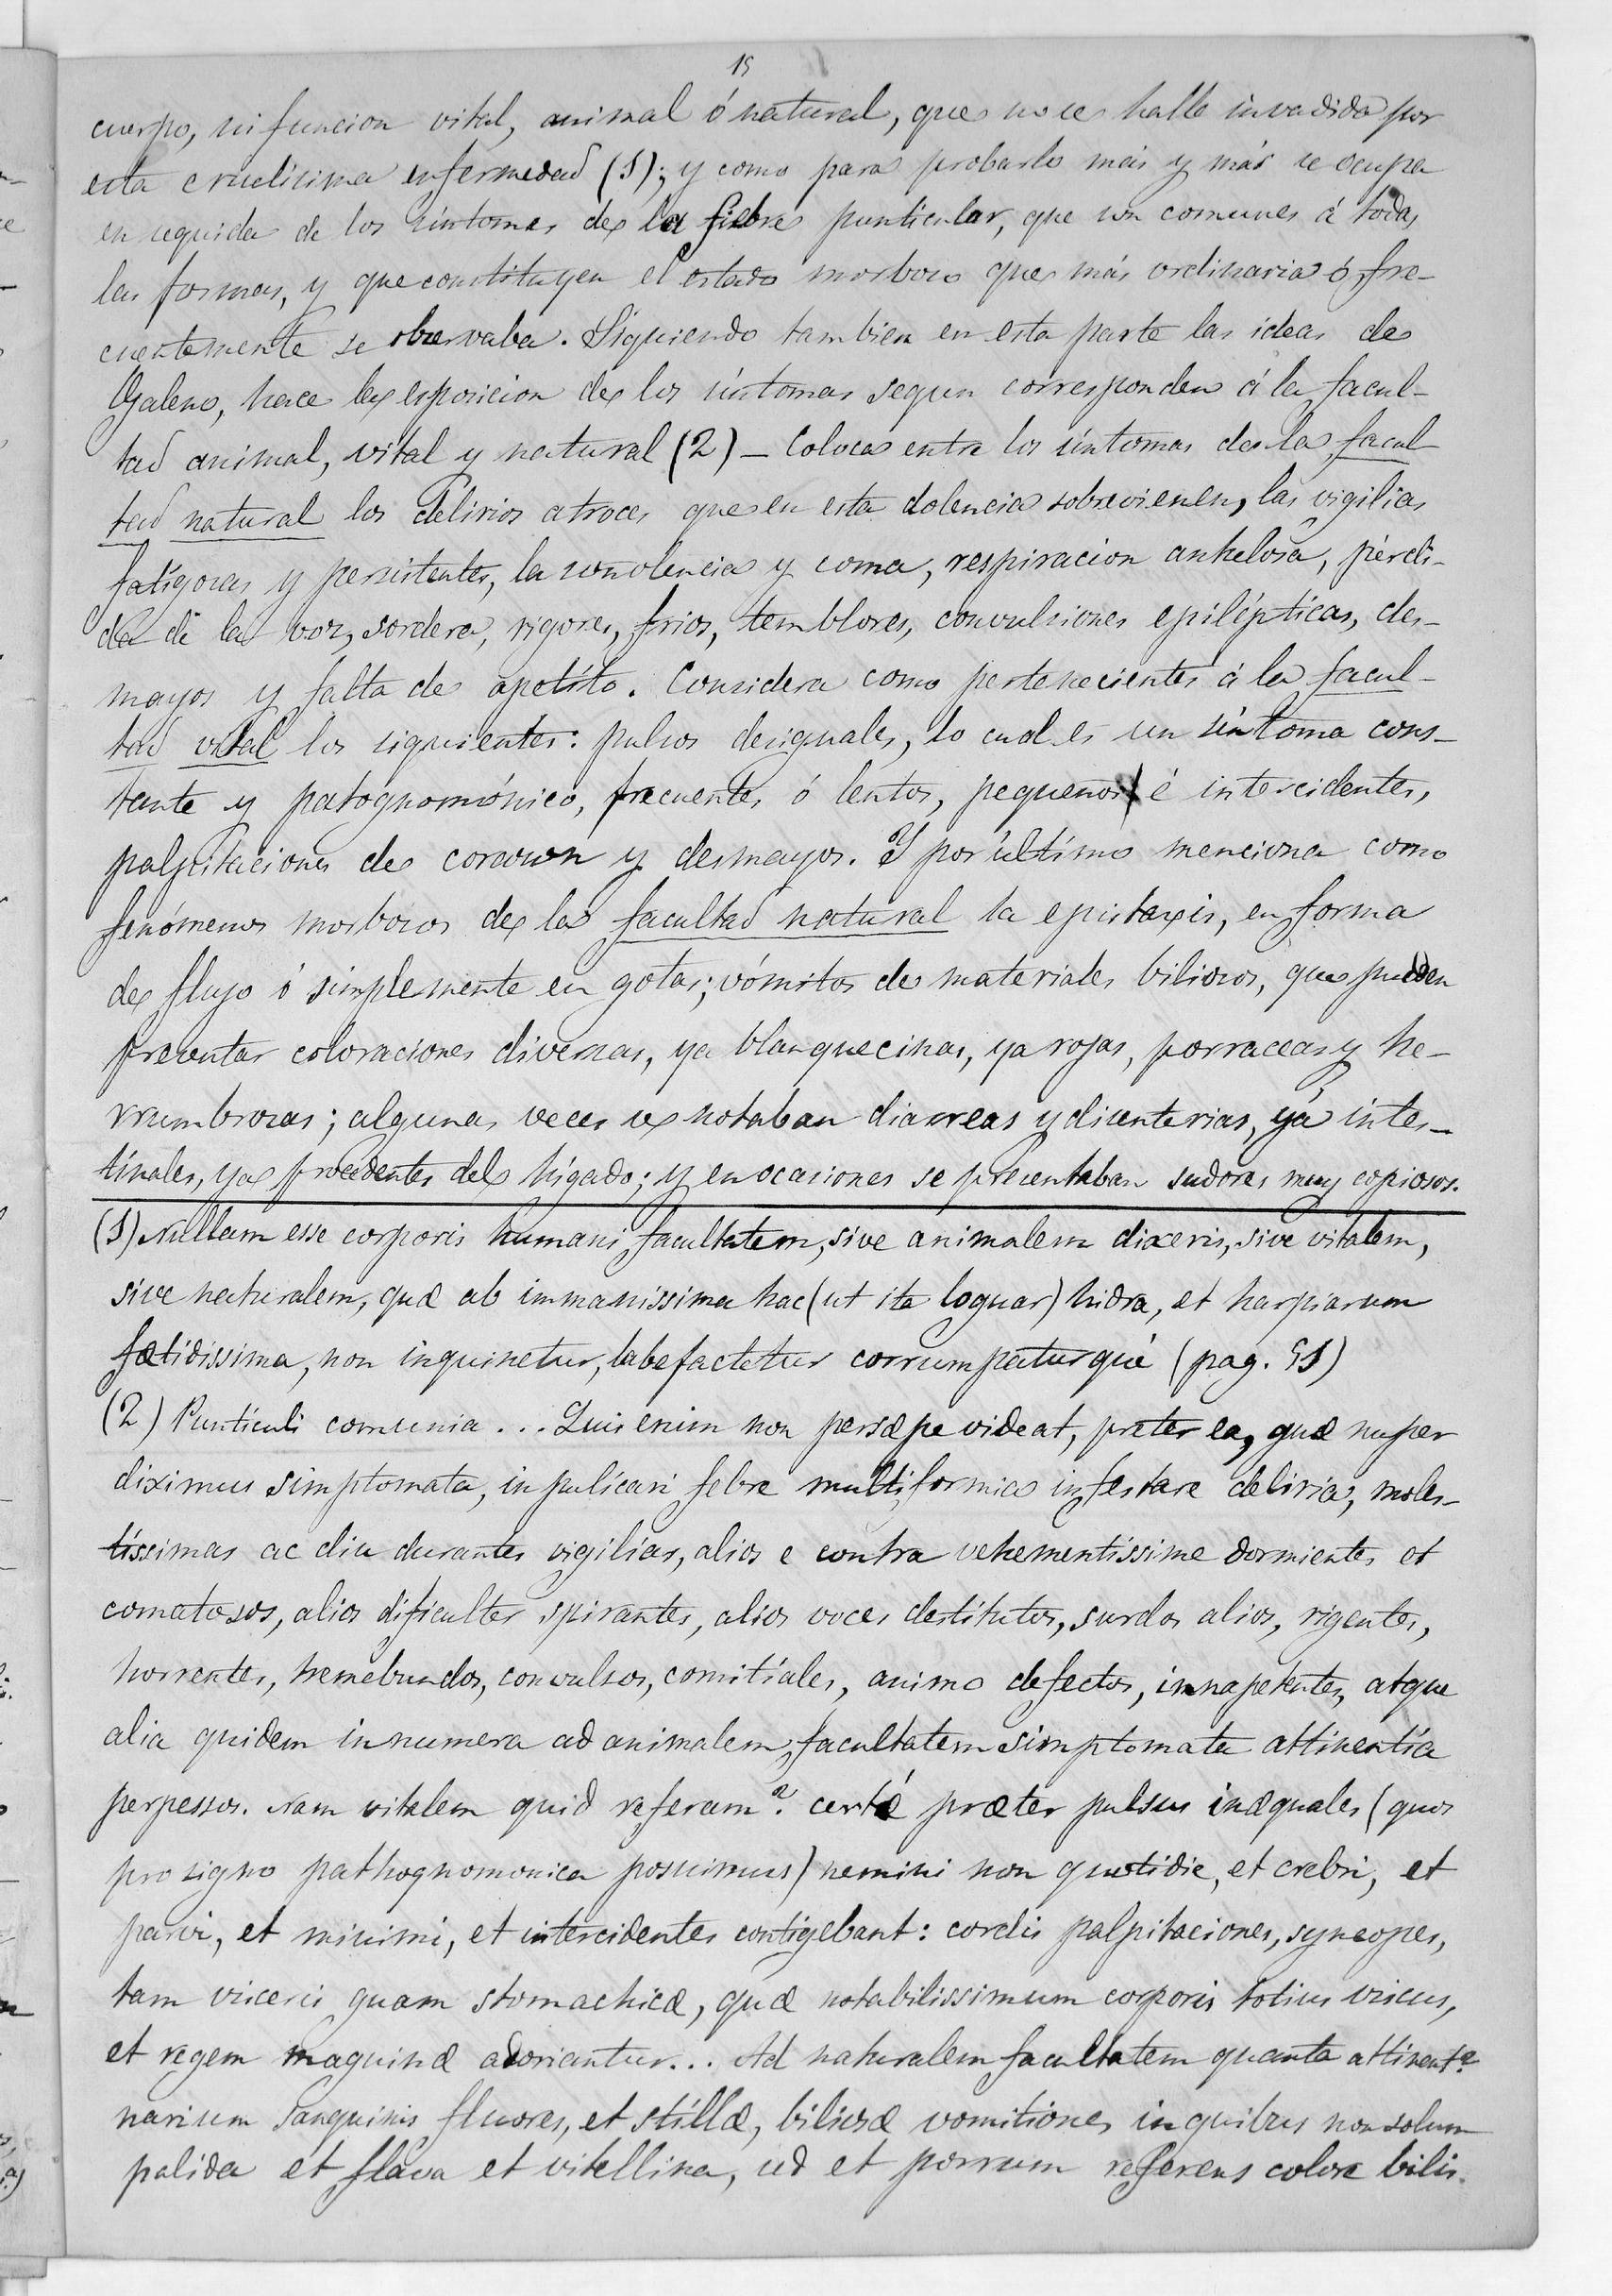 15
cuerpo, ni funcion vital, animal ó natural, que no se halle invadida por
esta cruelisima enfermedad (1); y como para probarlo más y más se ocupa
en seguida de los síntomas de la fiebre punticular, que son comunes á todas
las formas, y que constituyen el estado morboso que más ordinaria ó fre-
cuentemente se observaba. Siguiendo tambien en esta parte las ideas de
Galeno, hace la esposicion de los síntomas segun corresponden á la facul-
tad animal, vital y natural (2) _ Coloca entre los síntomas de la facul-
tad natural los delirios atroces que en esta dolencia sobrevienen, las vigilias
fatígosas y persistentes, la soñolencia y coma, respiracion anhelosa, pérdi-
da de la voz, sordera, rigores, frios, temblores, convulsiones epilépticas, des-
mayos y falta de apetito. Considera como pertenecientes á la facul-
tad vital los siguientes: pulsos desiguales, lo cual es un síntoma cons-
tante y patognomónico, frecuentes ó lentos, pequeños é intercidentes,
palpitaciones de corazon y desmayos. Y por último menciona como
fenómenos morbosos de la facultad natural la epistaxis, en forma
de flujo ó simplemente en gotas; vómitos de materiales biliosos, que pueden
presentar coloraciones diversas, ya blanquecinas, ya rojas, porraceas y he-
rrumbrosas; algunas veces se notaban diarreas y disenterias, yá intes-
tinales, ya procedentes del hígado; y en ocasiones se presentaban sudores muy copiosos.
(1) Nullam esse corporis humani facultatem, sive animalem dixeris, sive vitalem,
sive naturalem, quæ ab immanissima hac (ut ita loquar) hidra, et harpiarum
fætidissima, non inquinetur, labefactetur corrumpaturqué (pag. 51)
(2) Punticuli comunia ... Quis enim non persæpe videat, preter ea, quæ nuper
diximus simptomata, in pulicari febre multiformia infestare deliria, moles-
tissimas ac diu durantes vigilias, alios e contra vehementissime dormientes et
comatosos, alios dificulter spirantes, alios voces destitutos, surdos alios, rigentes,
horrentes, tremebundos, convulsos, comitiales, animo defectos, innapetentes, atque
alia quidem innumera ad animalem facultatem simptomata attinentia
perpessos. Nam vitalem quid referam? certé præter pulsus inæquales (quos
pro signo pathognomonica posuimus) nemini non quotidie, et crebri, et
parvi, et minimi, et intercidentes contigebant: cordis palpitaciones, syncopes,
tam visceris quam stomachicæ, quæ notabilissimum corporis totius viscus,
et regem maquinæ adoriantur... Ad naturalem facultatem quanta attinent?
narium sanguinis fluores, et stillæ, biliosæ vomitiones in quibus non solum
palida et flava et vitellina, sed et porrum referens colore bilis.